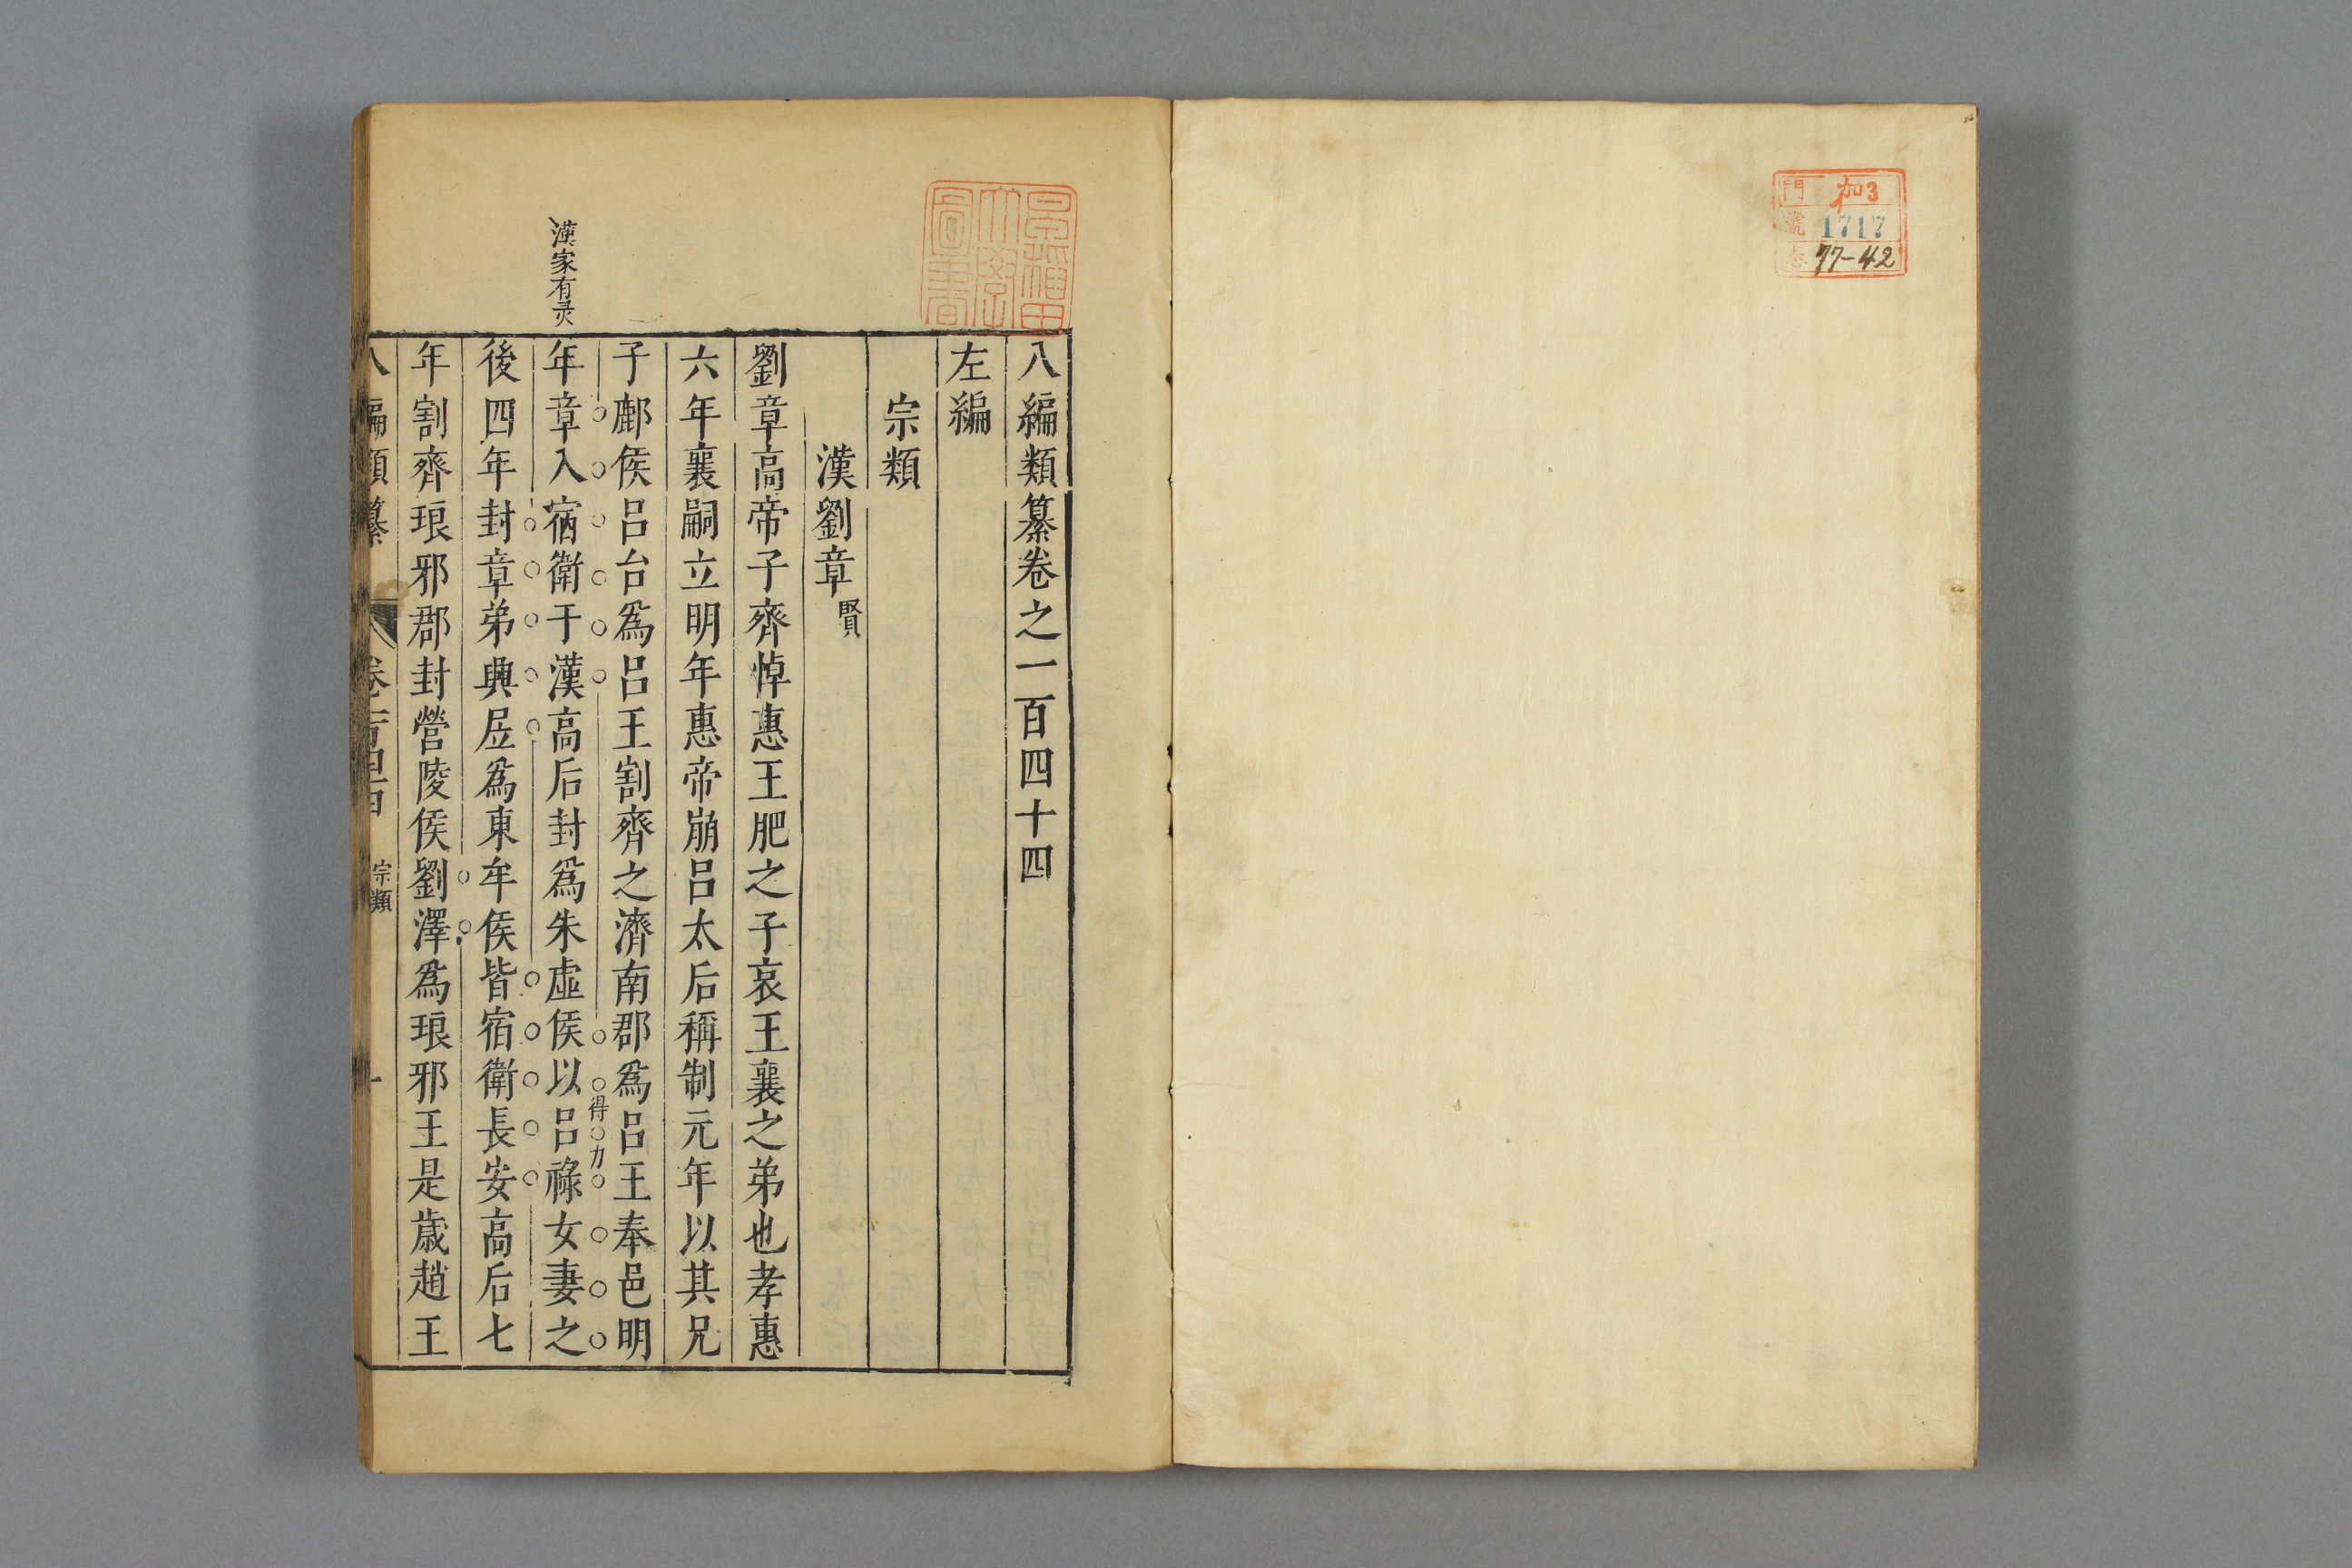 門 加3
號 1717
卷 77-42
早稲田
大學
圖書
八編類纂卷之一百四十四
左編
宗類
漢劉章賢
劉章高帝子齊悼惠王肥之子哀王襄之弟也孝惠
六年襄嗣立明年惠帝崩呂太后稱制元年以其兄
子鄜侯呂台爲呂王割齊之濟南郡爲呂王奉邑明
得力
年章入宿衛于漢高后封爲朱虛侯以呂祿女妻之
漢家有灵
後四年封章弟興居爲東牟侯皆宿衛長安高后七
年割齊琅邪郡封營陵侯劉澤爲琅邪王是歲趙王
八編類纂 卷一百四十四 宗類 一